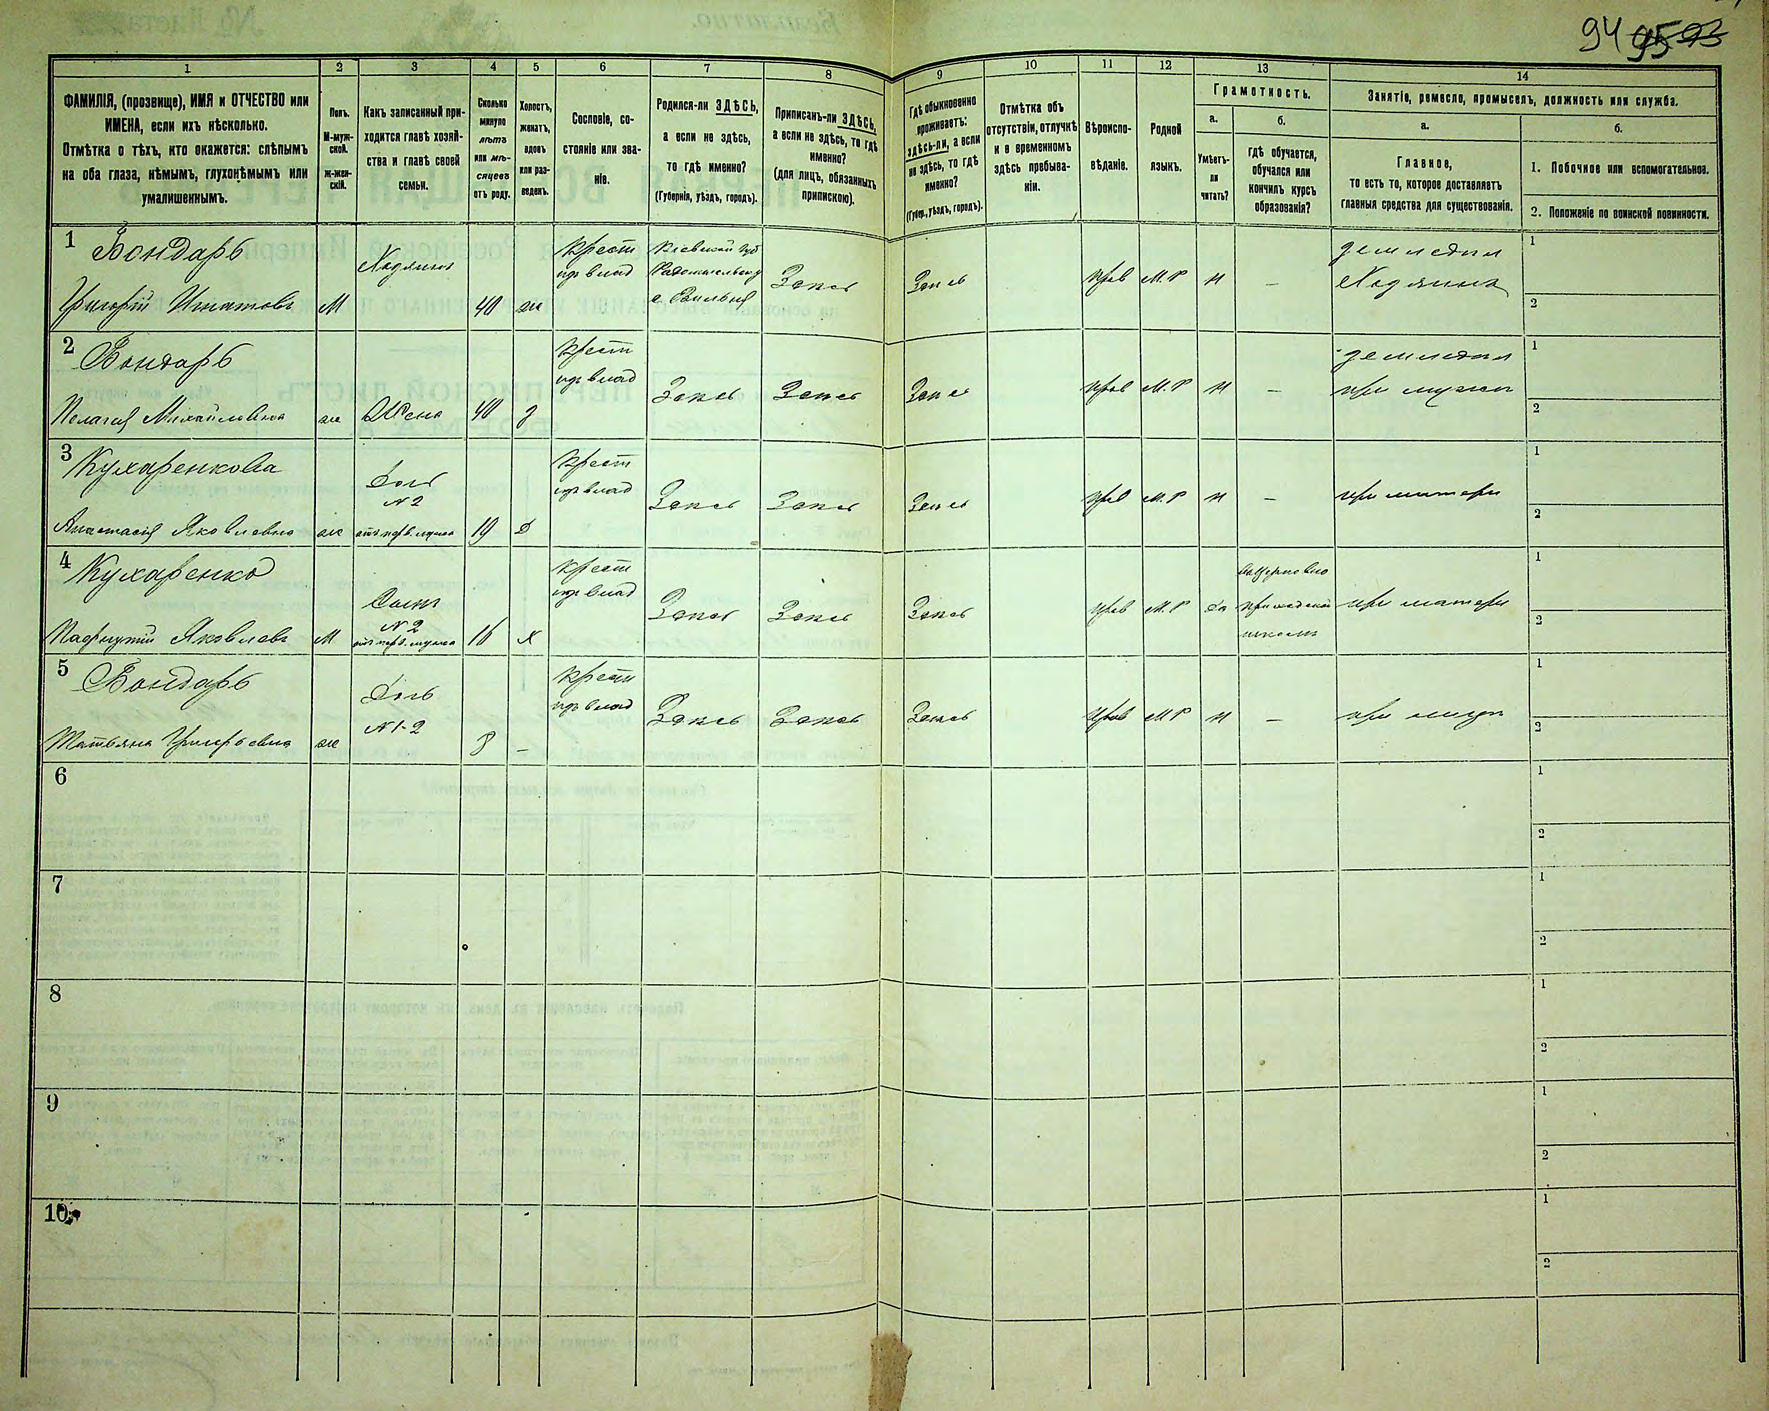 94 95 93
1 2 3 4 5 6 7 8 9 10 11 12 13 14
ФАМИЛІЯ, (прозвище), ИМЯ и ОТЧЕСТВО или
ИМЕНА, если ихъ нѣсколько.
Отмѣтка о тѣхъ, кто окажется: слѣпымъ
на оба глаза, нѣмымъ, глухонѣмымъ или
умалишеннымъ.
Полъ.
М-муж-
ской.
ж-жен-
скій.
Какъ записанный при-
ходится главѣ хозяй-
ства и главѣ своей
семьи.
Сколько
минуло
лѣтъ
или мѣ-
сяцевъ
отъ роду.
Холостъ,
женатъ,
вдовъ
или раз-
веденъ.
Сословіе, со-
стояніе или зва-
ніе.
Родился-ли ЗДѢСЬ,
а если не здѣсь,
то гдѣ именно?
(Губернія, уѣздъ, городъ).
Приписанъ-ли ЗДѢСЬ,
а если не здѣсь, то гдѣ
именно?
(для лицъ, обязанныхъ
припискою).
Гдѣ обыкновенно
проживаетъ:
здѣсь-ли, а если
не здѣсь, то гдѣ
именно?
(Губер., уѣздъ, городъ).
Отмѣтка объ
отсутствіи, отлучкѣ
и о временномъ
здѣсь пребыва-
ніи.
Вѣроиспо-
вѣданіе.
Родной
языкъ.
Грамотность.
а.
Умѣетъ-
ли
читать?
б.
гдѣ обучается,
обучался или
кончилъ курсъ
образованія?
Занятіе, ремесло, промыселъ, должность или служба.
а.
Главное,
то есть то, которое доставляетъ
главныя средства для существованія.
б.
1. Побочное или вспомогательное.
2. Положеніе по воинской повинности.
1 Бондарь
Григорій Игнатовъ М Хозяинъ 40 ж
Крест
изъ влад
Кіевской губ
Радомысльскаго у
Здесь Здесь Прав М.Р н —
земледел
Хозяинъ
1
2
2 Бондарь
Пелагея Михайловна ж Жена 40 з
Крест
изъ влад
Здесь Здесь Здесь Прав М.Р н —
земледел
при мужи
1
2
3 Кухаренкова
Анастасія Яковлевна ж
Дочь
N 2
отъ перв. мужа
19 д
Крест
изъ влад
Здесь Здесь Здесь Прав М.Р н — при матери
1
2
4 Кухаренко
Пафнутій Яковлевъ М
Сынъ
N 2
отъ перв. мужа
16 х
Крест
изъ влад
Здесь Здесь Здесь Прав М.Р да
въ церковно
приходской
школѣ
при матери
1
2
5 Бондарь
Татьяна Григорьевна ж
Дочь
N 1-2
8 —
Крест
изъ влад
Здесь Здесь Здесь Прав М.Р н —
1
2
6
1
2
7
1
2
8
1
2
9
1
2
10
1
2